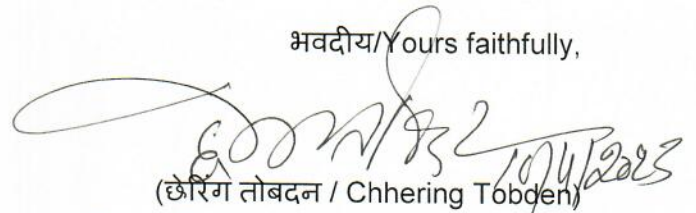 भवदीय/Yours faithfully,
10/4/2023
(छेरिंग तोबदन / Chhering Tobden)